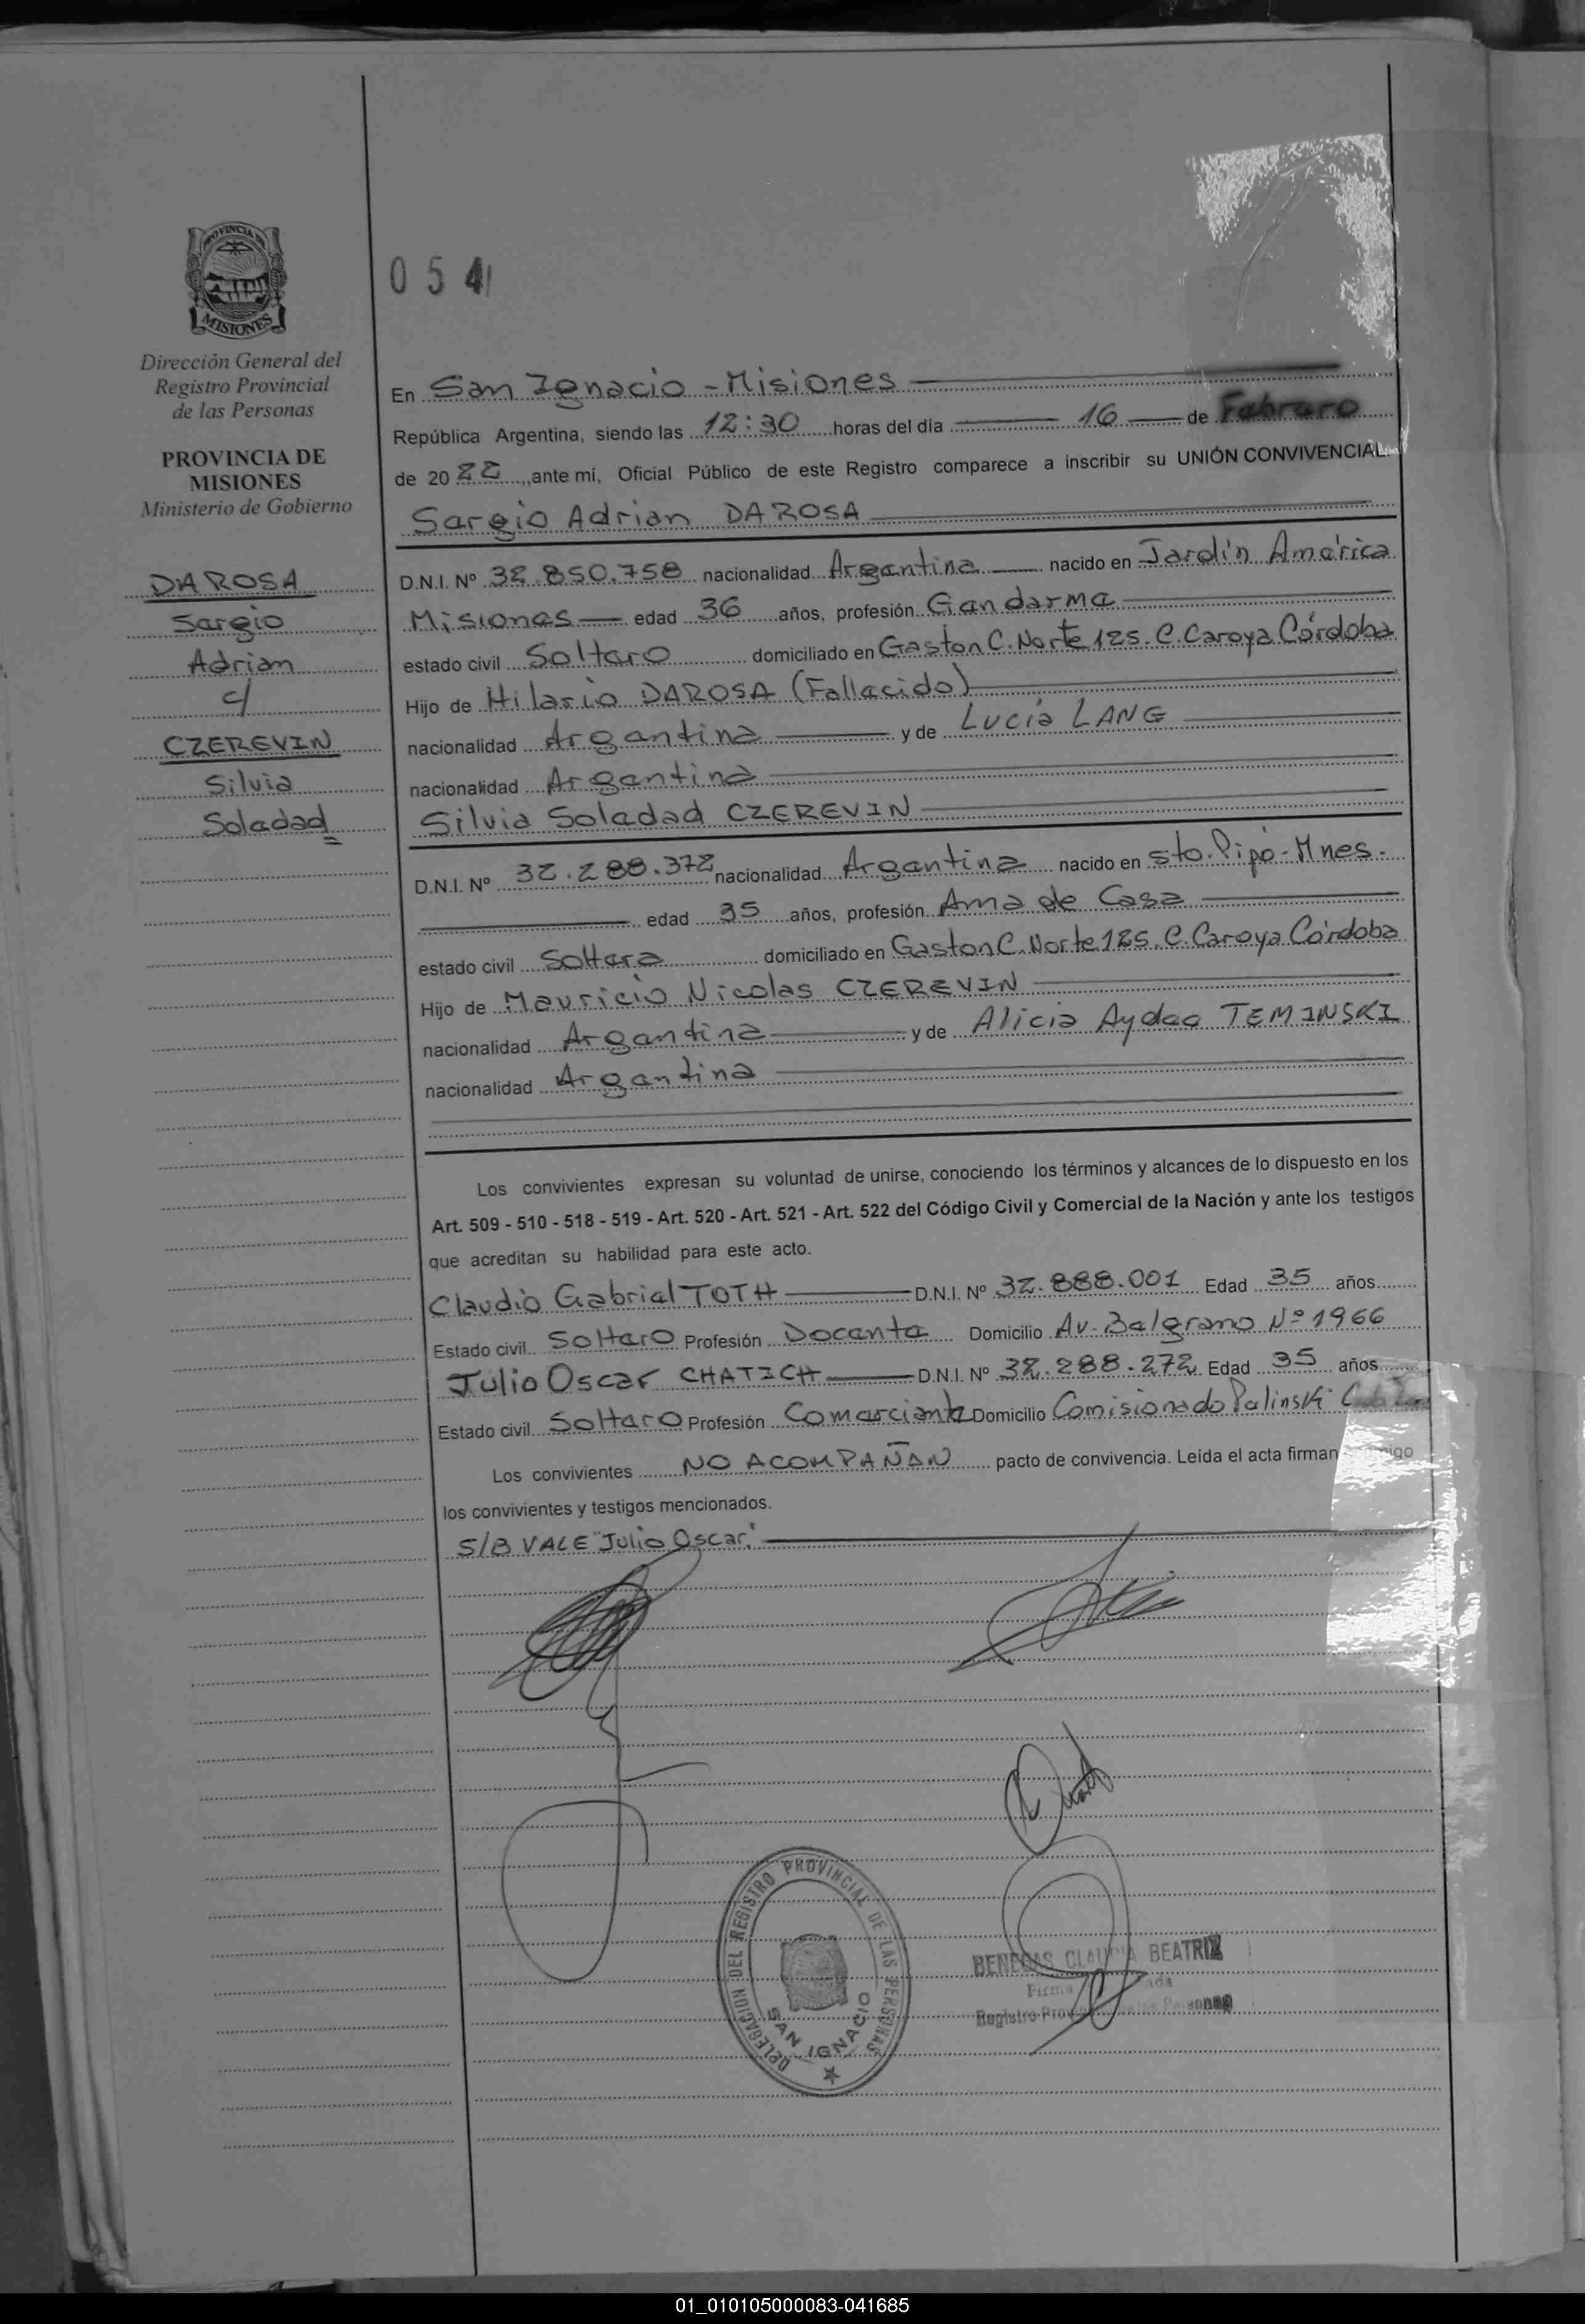 PROVINCIA DE
MISIONES
Dirección General del
Registro Provincial
de las Personas
PROVINCIA DE
MISIONES
Ministerio de Gobierno
DAROSA
Sergio
Adrian
c/
CZEREVIN
Silvia
Soledad
054
En San Ignacio - Misiones
República Argentina, siendo las 12:30 horas del día 16 de Febrero
de 2022, ante mí, Oficial Público de este Registro comparece a inscribir su UNIÓN CONVIVENCIAL
Sergio Adrian DAROSA
D.N.I. Nº 32.850.758 nacionalidad Argentina nacido en Jardín América
Misiones edad 36 años, profesión Gendarme
estado civil Soltero domiciliado en Gaston C. Norte 125. C. Caroya Córdoba
Hijo de Hilario DAROSA (Fallecido)
nacionalidad Argentina y de Lucia LANG
nacionalidad Argentina
Silvia Soledad CZEREVIN
D.N.I. Nº 32.288.372 nacionalidad Argentina nacido en Sto. Pipó - Mnes.
edad 35 años, profesión Ama de Casa
estado civil Soltera domiciliado en Gaston C. Norte 125. C. Caroya Córdoba
Hijo de Mauricio Nicolas CZEREVIN
nacionalidad Argentina y de Alicia Aydee TEMINSKI
nacionalidad Argentina
Los convivientes expresan su voluntad de unirse, conociendo los términos y alcances de lo dispuesto en los
Art. 509 - 510 - 518 - 519 - Art. 520 - Art. 521 - Art. 522 del Código Civil y Comercial de la Nación y ante los testigos
que acreditan su habilidad para este acto.
Claudio Gabriel TOTH D.N.I. Nº 32.888.001 Edad 35 años
Estado civil Soltero Profesión Docente Domicilio Av. Belgrano Nº 1966
Julio Oscar CHATICH D.N.I. Nº 32.288.272 Edad 35 años
Estado civil Soltero Profesión Comerciante Domicilio Comisionado Palinski
Los convivientes NO ACOMPAÑAN pacto de convivencia. Leída el acta firman
los convivientes y testigos mencionados.
S/B VALE "Julio Oscar."
DELEGACION DEL REGISTRO PROVINCIAL DE LAS PERSONAS
SAN IGNACIO
BENEGAS CLAUDIA BEATRIZ
Firma
01_010105000083-041685